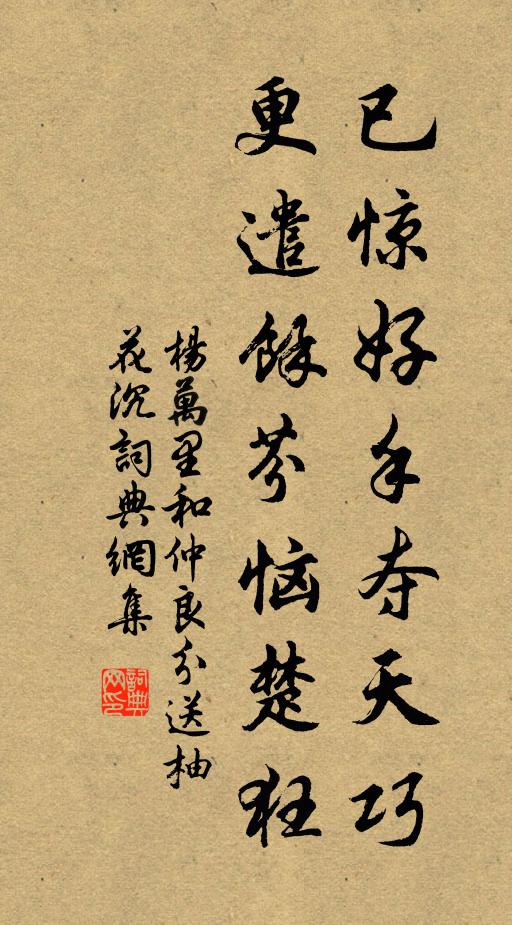 已惊好手夺天巧
更遣馀芬恼楚狂
楊萬里和仲良分送柚
花沉詞典網集
詞典网印